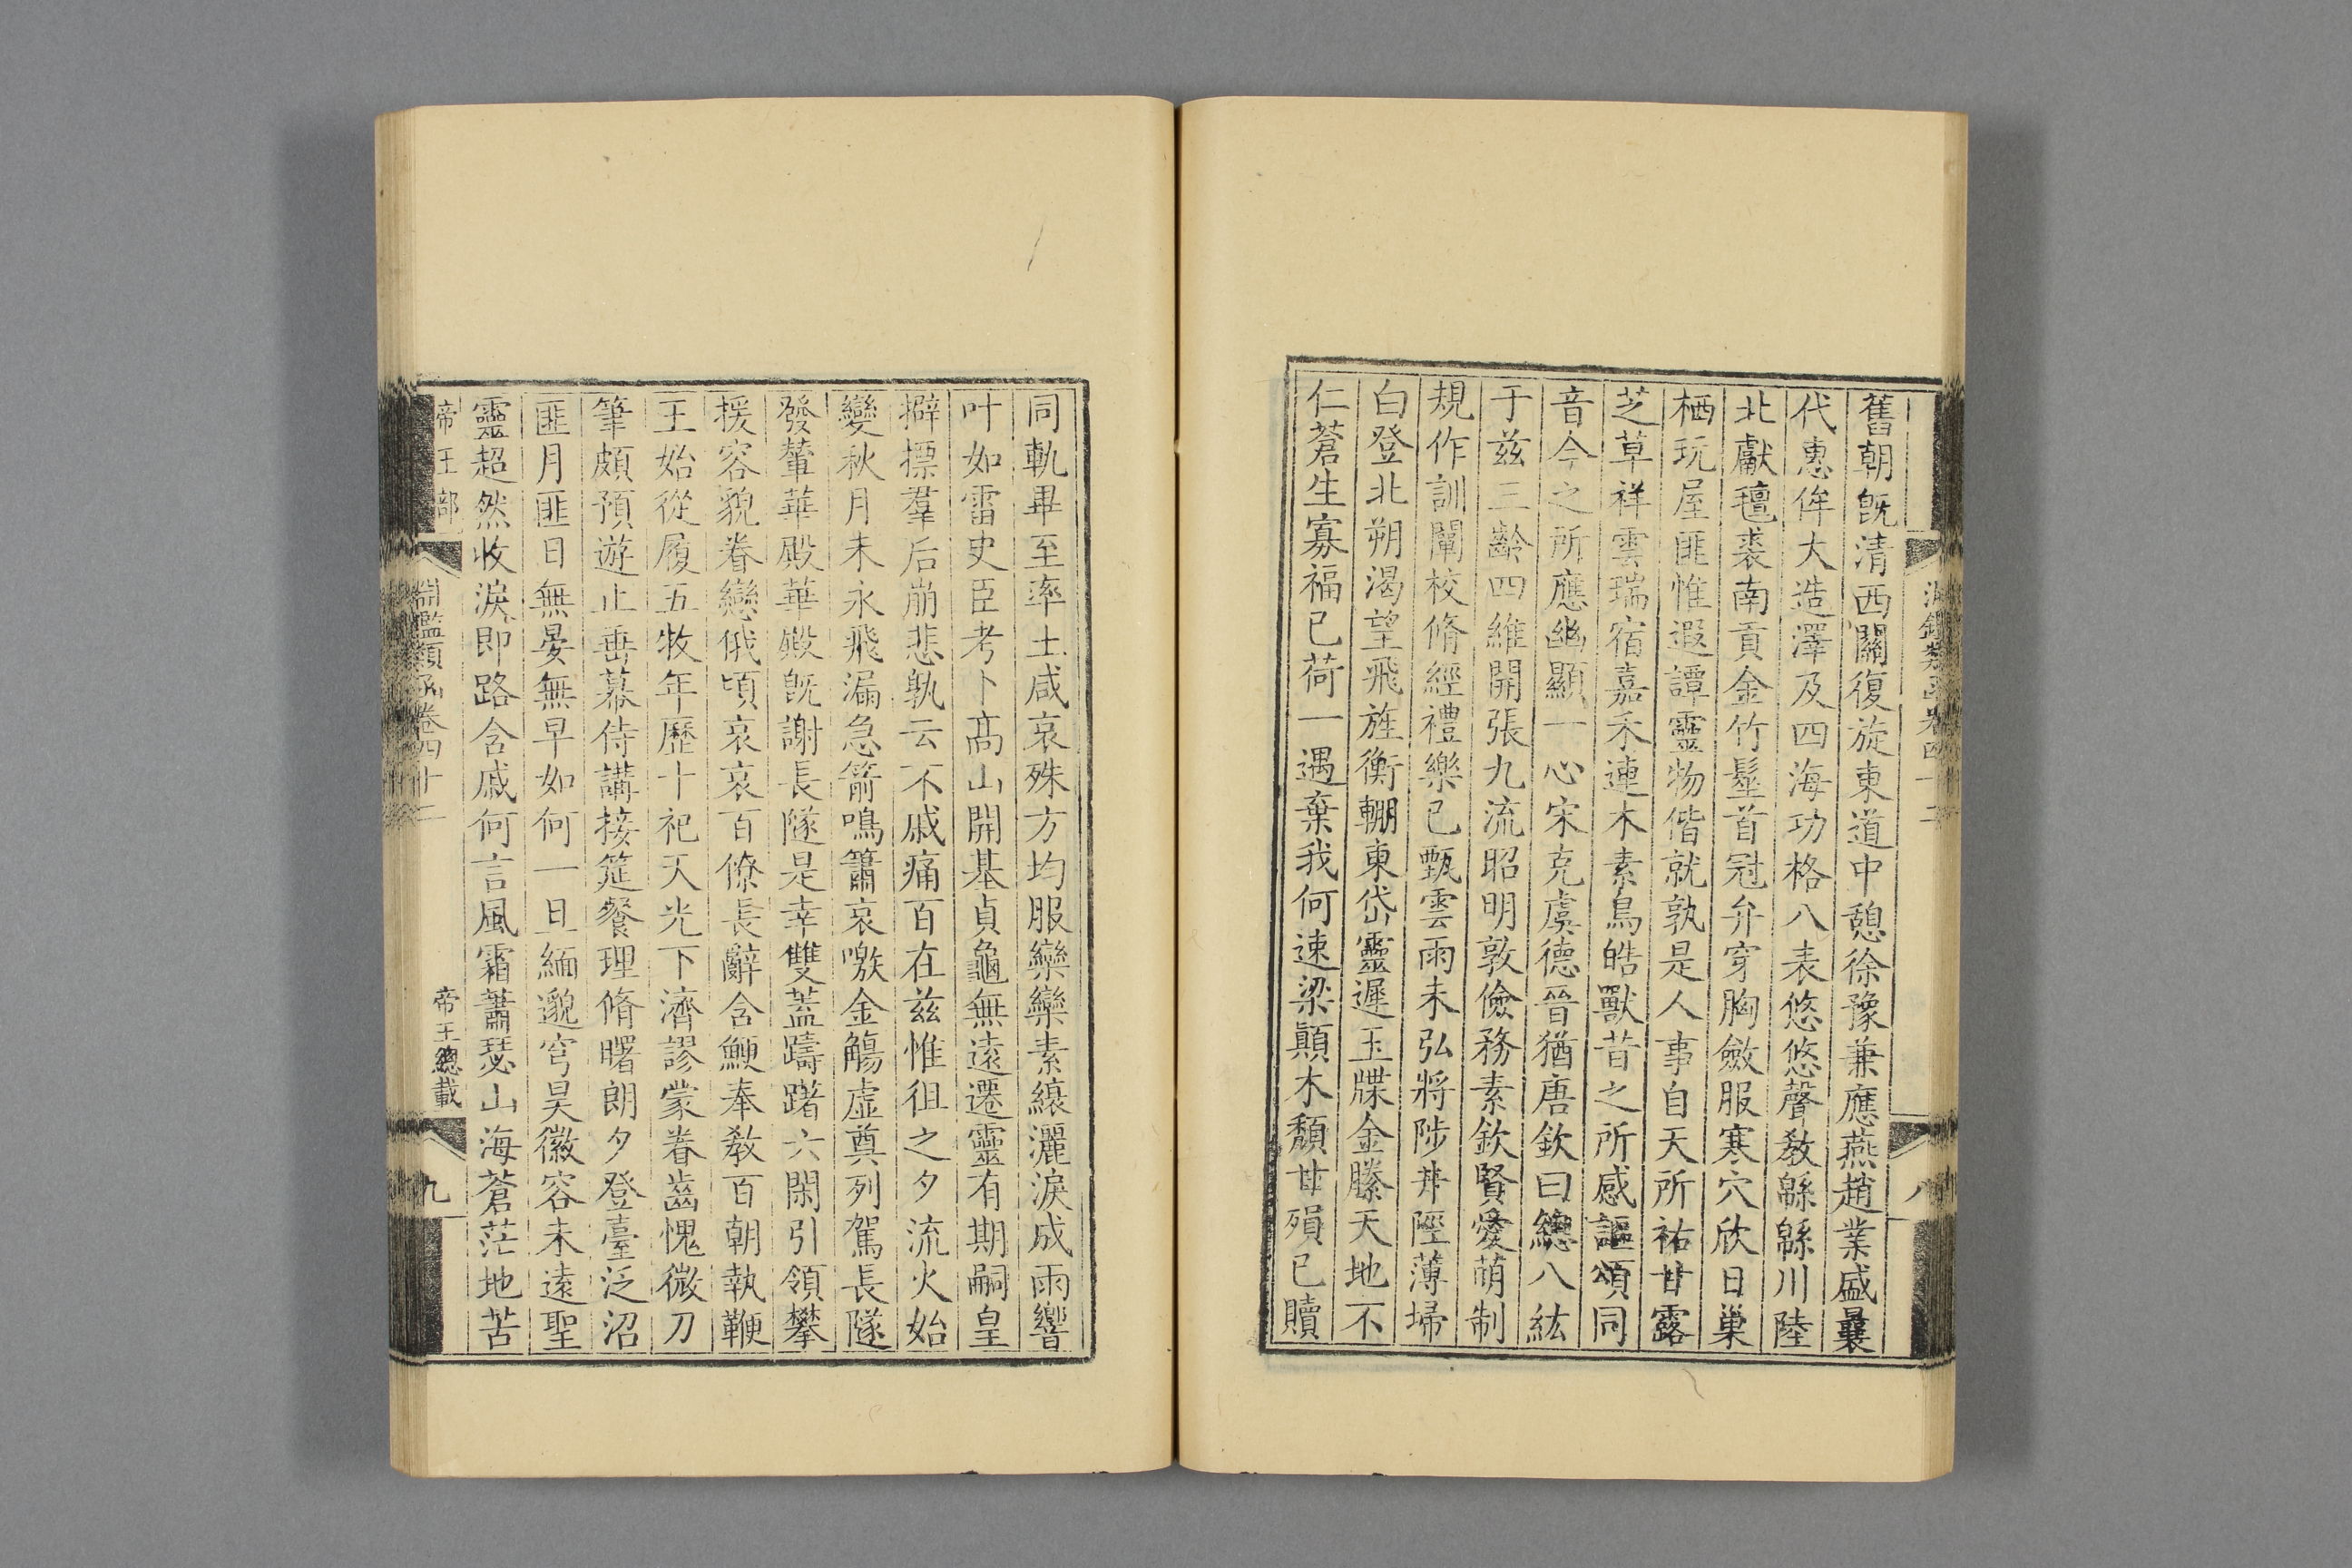 舊朝旣清西關復旋東道中憩徐豫兼應燕趙業盛曩
代惠侔大造澤及四海功格八表悠悠聲敎緜緜川陸
北獻氊裘南貢金竹髽首冠弁穿胸斂服寒穴欣日巢
栖玩屋匪惟遐譚靈物偕就孰是人事自天所祐甘露
芝草祥雲瑞宿嘉禾連木素鳥皓獸昔之所感謳頌同
音今之所應幽顯一心宋克虞德晉猶唐欽曰總八紘
于兹三齡四維開張九流昭明敦儉務素欽賢愛萌制
規作訓闡校脩經禮樂已甄雲雨未弘將陟井陘薄埽
白登北朔渴望飛旌衡輣東岱靈遲玉牒金縢天地不
仁蒼生寡福已荷一遇棄我何速梁顚木頽甘殞已贖
八
同軌畢至率土咸哀殊方均服欒欒素縗灑淚成雨響
叶如雷史臣考卜高山開基貞龜無遠遷靈有期嗣皇
擗摽羣后崩悲孰云不戚痛百在兹惟徂之夕流火始
變秋月未永飛漏急箭鳴簫哀噭金觴虛奠列駕長隧
發輦華殿華殿旣謝長隧是幸雙蓋躊躇六閑引領攀
援容貌眷戀俄頃哀哀百僚長辭含鯁奉敎百朝執鞭
王始從履五牧年歷十祀天光下濟謬蒙眷齒愧微刀
筆頗預遊止垂幕侍講接筵餐理脩曙朗夕登臺泛沼
匪月匪日無晏無早如何一旦緬邈穹昊徽容未遠聖
靈超然收淚即路含戚何言風霜蕭瑟山海蒼茫地苦
帝王部
淵鑑類函卷四十二
帝王總載
九